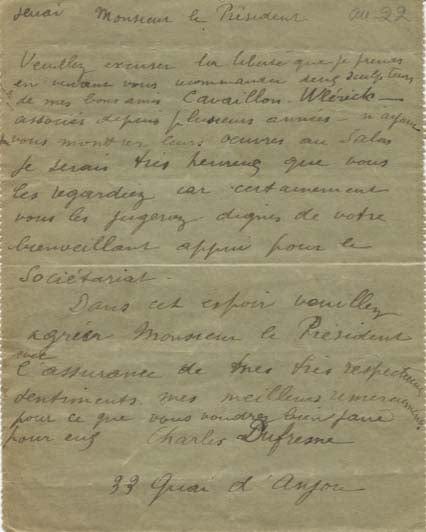 jeudi Monsieur le Président av 22
Veuillez excuser la liberté que je prends
en venant vous recommander deux sculpteurs
de mes bons amis Cavaillon - Wlérick -
associés depuis plusieurs années - n'ayant
vous montrer leurs oeuvres au Salon
Je serais très heureux que vous
les regardiez car certainement
vous les jugerez dignes de votre
bienveillant appui pour le
Sociétariat.
Dans cet espoir veuillez
agréer Monsieur le Président
avec
l'assurance de mes très respectueux
sentiments mes meilleurs remerciements
pour ce que vous voudrez bien faire
pour eux Charles Dufresne
33 Quai d'Anjou